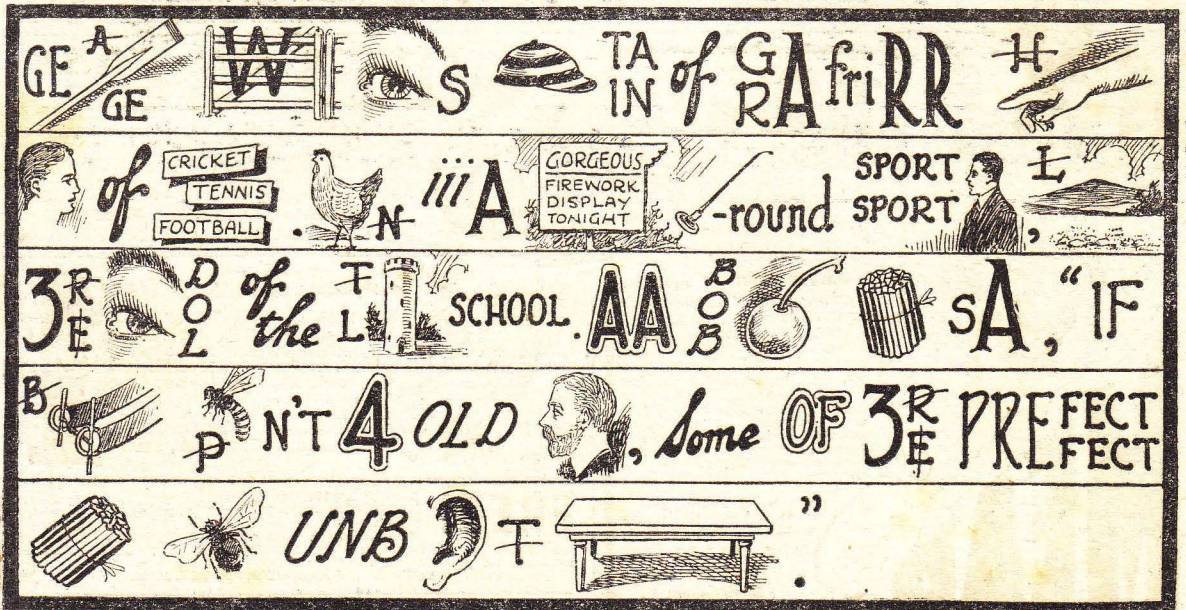 GE A GE W S TA IN of G R A fri RR H
of CRICKET TENNIS FOOTBALL . N iii A GORGEOUS FIREWORK DISPLAY TONIGHT -round SPORT SPORT , L
3 R E D O L of the T L SCHOOL . AA B O B S A , “ IF
B P N'T 4 OLD , Some OF 3 R E PRE FECT FECT
UNB T . ”